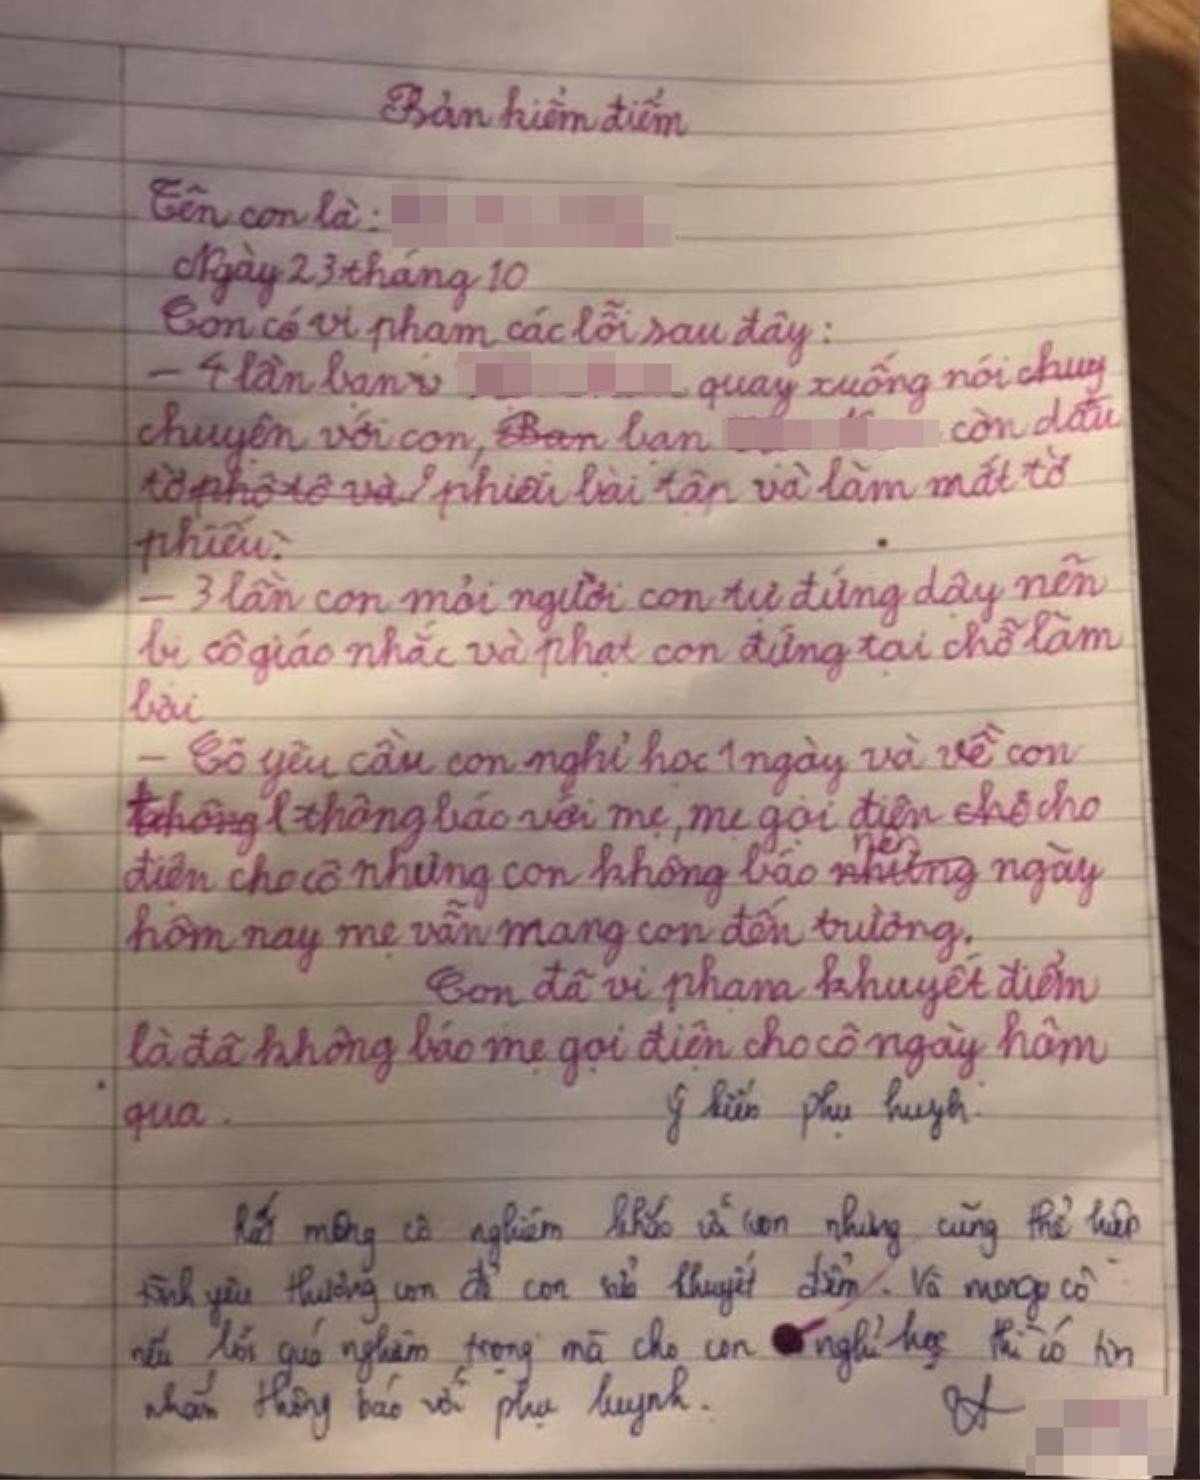 Bản kiểm điểm
Tên con là:
Ngày 23 tháng 10
Con có vi phạm các lỗi sau đây:
- 4 lần bạn quay xuống nói chuy
chuyện với con, Ban bạn còn dấu
tờ phô tô và phiếu bài tập và làm mất tờ
phiếu.
- 3 lần con mỏi người con tự đứng dậy nên
bị cô giáo nhắc và phạt con đứng tại chỗ làm
bài
- Cô yêu cầu con nghỉ học 1 ngày và về con
không thông báo với mẹ, mẹ gọi điện chô cho
điện cho cô nhưng con không báo những nên ngày
hôm nay mẹ vẫn mang con đến trường.
Con đã vi phạm khuyết điểm
là đã không báo mẹ gọi điện cho cô ngày hôm
qua.
Ý kiến phụ huynh.
Rất mong cô nghiêm khắc với con nhưng cũng thể hiện
tình yêu thương con để con khuyết điểm. Và mong cô
nếu lỗi quá nghiêm trọng mà cho con nghỉ học thì có tin
nhắn thông báo với phụ huynh.